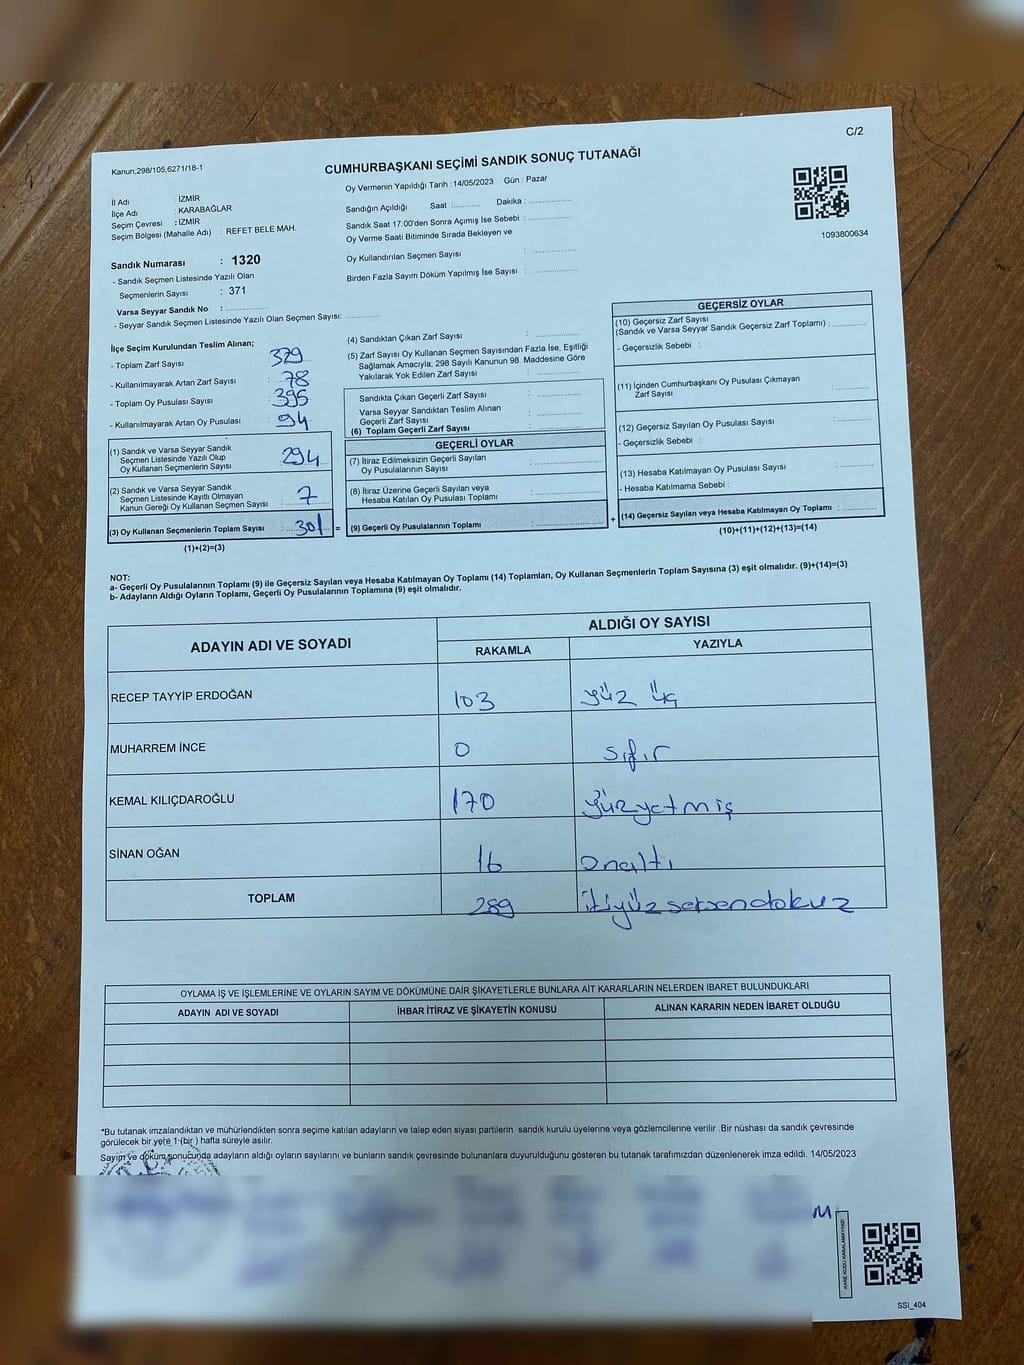 C/2
Kanun;298/105,6271/18-1
CUMHURBAŞKANI SEÇİMİ SANDIK SONUÇ TUTANAĞI
Oy Vermenin Yapıldığı Tarih :14/05/2023 Gün : Pazar
İl Adı : İZMİR
İlçe Adı : KARABAĞLAR
Seçim Çevresi : İZMİR
Seçim Bölgesi (Mahalle Adı) : REFET BELE MAH.
Sandık Numarası : 1320
- Sandık Seçmen Listesinde Yazılı Olan
Seçmenlerin Sayısı : 371
Varsa Seyyar Sandık No :
- Seyyar Sandık Seçmen Listesinde Yazılı Olan Seçmen Sayısı:
Sandığın Açıldığı Saat : Dakika :
Sandık Saat 17:00'den Sonra Açımış İse Sebebi :
Oy Verme Saati Bitiminde Sırada Bekleyen ve
Oy Kullandırılan Seçmen Sayısı :
Birden Fazla Sayım Döküm Yapılmış İse Sayısı :
1093800634
İlçe Seçim Kurulundan Teslim Alınan;
- Toplam Zarf Sayısı : 379
- Kullanılmayarak Artan Zarf Sayısı : 78
- Toplam Oy Pusulası Sayısı : 395
- Kullanılmayarak Artan Oy Pusulası : 94
(1) Sandık ve Varsa Seyyar Sandık
Seçmen Listesinde Yazılı Olup
Oy Kullanan Seçmenlerin Sayısı : 294
(2) Sandık ve Varsa Seyyar Sandık
Seçmen Listesinde Kayıtlı Olmayan
Kanun Gereği Oy Kullanan Seçmen Sayısı : 7
(3) Oy Kullanan Seçmenlerin Toplam Sayısı : 301 =
(1)+(2)=(3)
(4) Sandıktan Çıkan Zarf Sayısı :
(5) Zarf Sayısı Oy Kullanan Seçmen Sayısından Fazla İse, Eşitliği
Sağlamak Amacıyla; 298 Sayılı Kanunun 98. Maddesine Göre
Yakılarak Yok Edilen Zarf Sayısı :
Sandıkta Çıkan Geçerli Zarf Sayısı :
Varsa Seyyar Sandıktan Teslim Alınan
Geçerli Zarf Sayısı :
(6) Toplam Geçerli Zarf Sayısı :
GEÇERLİ OYLAR
(7) İtiraz Edilmeksizin Geçerli Sayılan
Oy Pusulalarının Sayısı :
(8) İtiraz Üzerine Geçerli Sayılan veya
Hesaba Katılan Oy Pusulası Toplamı :
(9) Geçerli Oy Pusulalarının Toplamı : +
GEÇERSİZ OYLAR
(10) Geçersiz Zarf Sayısı
(Sandık ve Varsa Seyyar Sandık Geçersiz Zarf Toplamı) :
- Geçersizlik Sebebi :
(11) İçinden Cumhurbaşkanı Oy Pusulası Çıkmayan
Zarf Sayısı :
(12) Geçersiz Sayılan Oy Pusulası Sayısı :
- Geçersizlik Sebebi :
(13) Hesaba Katılmayan Oy Pusulası Sayısı :
- Hesaba Katılmama Sebebi :
(14) Geçersiz Sayılan veya Hesaba Katılmayan Oy Toplamı :
(10)+(11)+(12)+(13)=(14)
NOT:
a- Geçerli Oy Pusulalarının Toplamı (9) ile Geçersiz Sayılan veya Hesaba Katılmayan Oy Toplamı (14) Toplamları, Oy Kullanan Seçmenlerin Toplam Sayısına (3) eşit olmalıdır. (9)+(14)=(3)
b- Adayların Aldığı Oyların Toplamı, Geçerli Oy Pusulalarının Toplamına (9) eşit olmalıdır.
ADAYIN ADI VE SOYADI
ALDIĞI OY SAYISI
RAKAMLA YAZIYLA
RECEP TAYYİP ERDOĞAN 103 yüz üç
MUHARREM İNCE 0 sıfır
KEMAL KILIÇDAROĞLU 170 yüzyetmiş
SİNAN OĞAN 16 onaltı
TOPLAM 289 ikiyüz seksendokuz
OYLAMA İŞ VE İŞLEMLERİNE VE OYLARIN SAYIM VE DÖKÜMÜNE DAİR ŞİKAYETLERLE BUNLARA AİT KARARLARIN NELERDEN İBARET BULUNDUKLARI
ADAYIN ADI VE SOYADI İHBAR İTİRAZ VE ŞİKAYETİN KONUSU ALINAN KARARIN NEDEN İBARET OLDUĞU
*Bu tutanak imzalandıktan ve mühürlendikten sonra seçime katılan adayların ve talep eden siyasi partilerin sandık kurulu üyelerine veya gözlemcilerine verilir .Bir nüshası da sandık çevresinde
görülecek bir yere 1 (bir ) hafta süreyle asılır.
Sayım ve döküm sonucunda adayların aldığı oyların sayılarını ve bunların sandık çevresinde bulunanlara duyurulduğunu gösteren bu tutanak tarafımızdan düzenlenerek imza edildi. 14/05/2023
KARE KODU KARALAMAYINIZ!
SSI_404